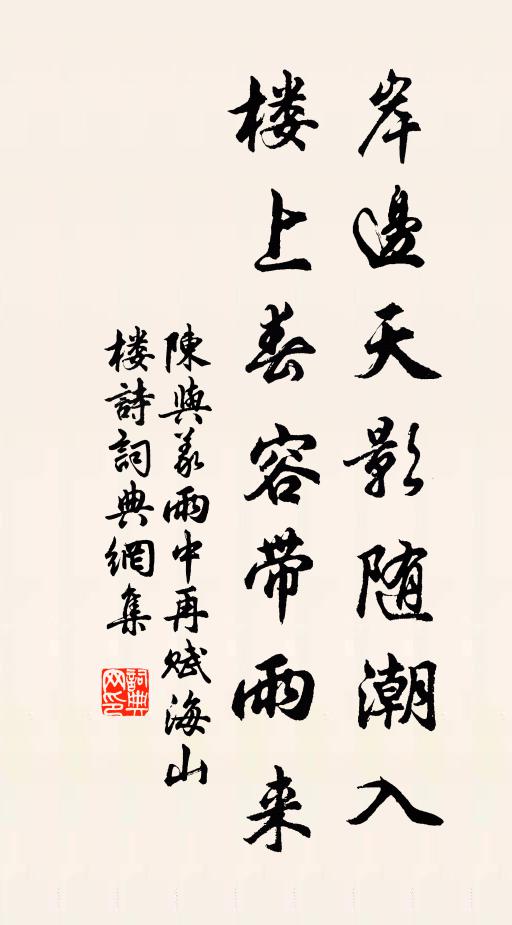 岸邊天影随潮入
楼上春容带雨来
陳與義雨中再赋海山
楼詩詞典網集
詞典网印